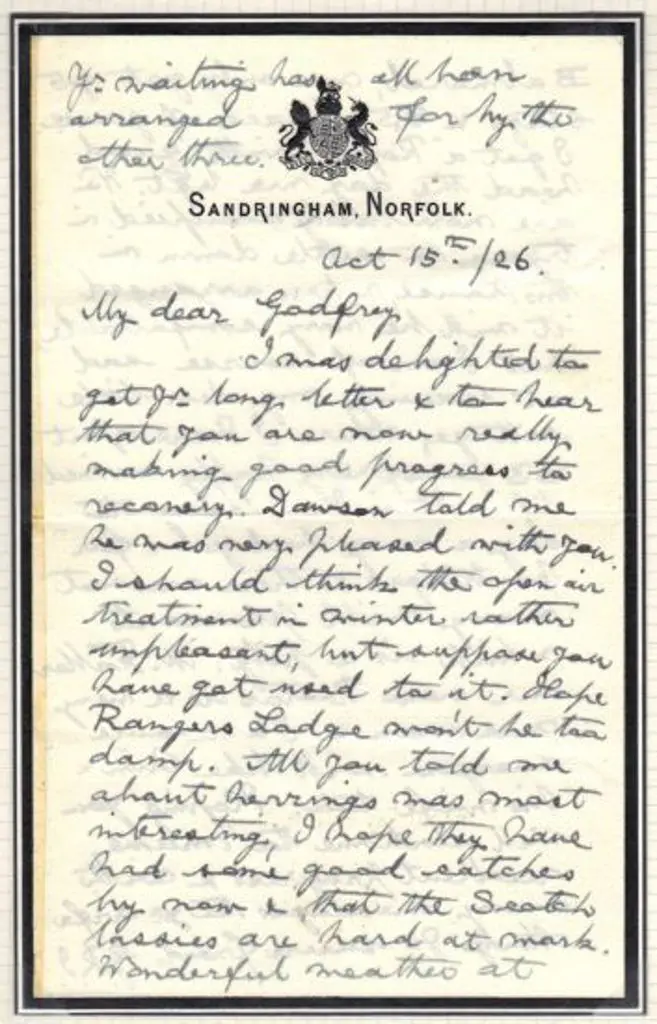 Yr waiting has all been
arranged for by the
other three.
SANDRINGHAM, NORFOLK.
Oct 15th/26.
My dear Godfrey
I was delighted to
get yr long letter & to hear
that you are now really
making good progress to
recovery. Dawson told me
he was very pleased with you.
I should think the open air
treatment in winter rather
unpleasant, but suppose you
have got used to it. Hope
Rangers Lodge won't be too
damp. All you told me
about herrings was most
interesting, I hope they have
had some good catches
by now & that the Scotch
lassies are hard at work.
Wonderful weather at